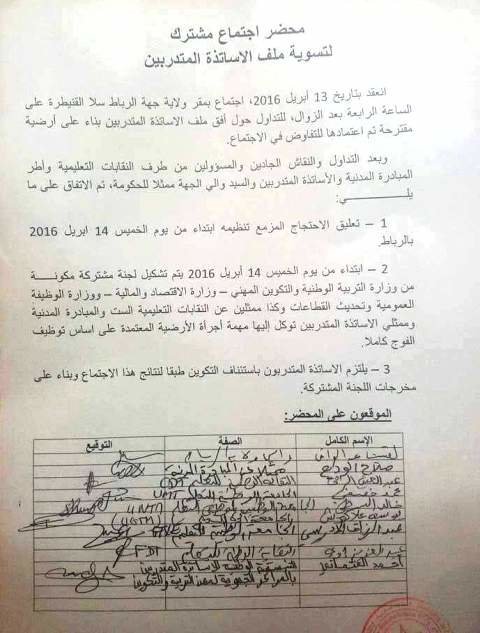 محضر اجتماع مشترك
لتسوية ملف الاساتذة المتدربين
انعقد بتاريخ 13 أبريل 2016، اجتماع بمقر ولاية جهة الرباط سلا القنيطرة على
الساعة الرابعة بعد الزوال، للتداول حول أفق ملف الأساتذة المتدربين بناء على أرضية
مقترحة تم اعتمادها للتفاوض في الاجتماع.
وبعد التداول والنقاش الجادين والمسؤولين من طرف النقابات التعليمية وأطر
المبادرة المدنية والأساتذة المتدربين والسيد والي الجهة ممثلا للحكومة، تم الاتفاق على ما
يلـــــــــــــي:
1 – تعليق الاحتجاج المزمع تنظيمه ابتداء من يوم الخميس 14 ابريل 2016
بالرباط.
2 – ابتداء من يوم الخميس 14 أبريل 2016 يتم تشكيل لجنة مشتركة مكونـــــة
من وزارة التربية الوطنية والتكوين المهني – وزارة الاقتصاد والمالية – ووزارة الوظيفة
العمومية وتحديث القطاعات وكذا ممثلين عن النقابات التعليمية الست والمبادرة المدنية
وممثلي الاساتذة المتدربين توكل إليها مهمة أجرأة الأرضية المعتمدة على اساس توظيف
الفوج كاملا.
3 – يلتزم الاساتذة المتدربون باستئناف التكوين طبقا لنتائج هذا الاجتماع وبناء على
مخرجات اللجنة المشتركة.
الموقعون على المحضر:
الإسم الكامل الصفة التوقيع
صلاح الوديع ممثلا عن المبادرة المدنية
النقابة الوطنية للتعليم CDT
الجامعة الوطنية للتعليم UMT
UNTM
UGTM
عبد الرزاق الإدريسي الجامعة الوطنية للتعليم
النقابة الوطنية للتعليم FDT
التنسيقية الوطنية للأساتذة المتدربين
بالمراكز الجهوية لمهن التربية والتكوين